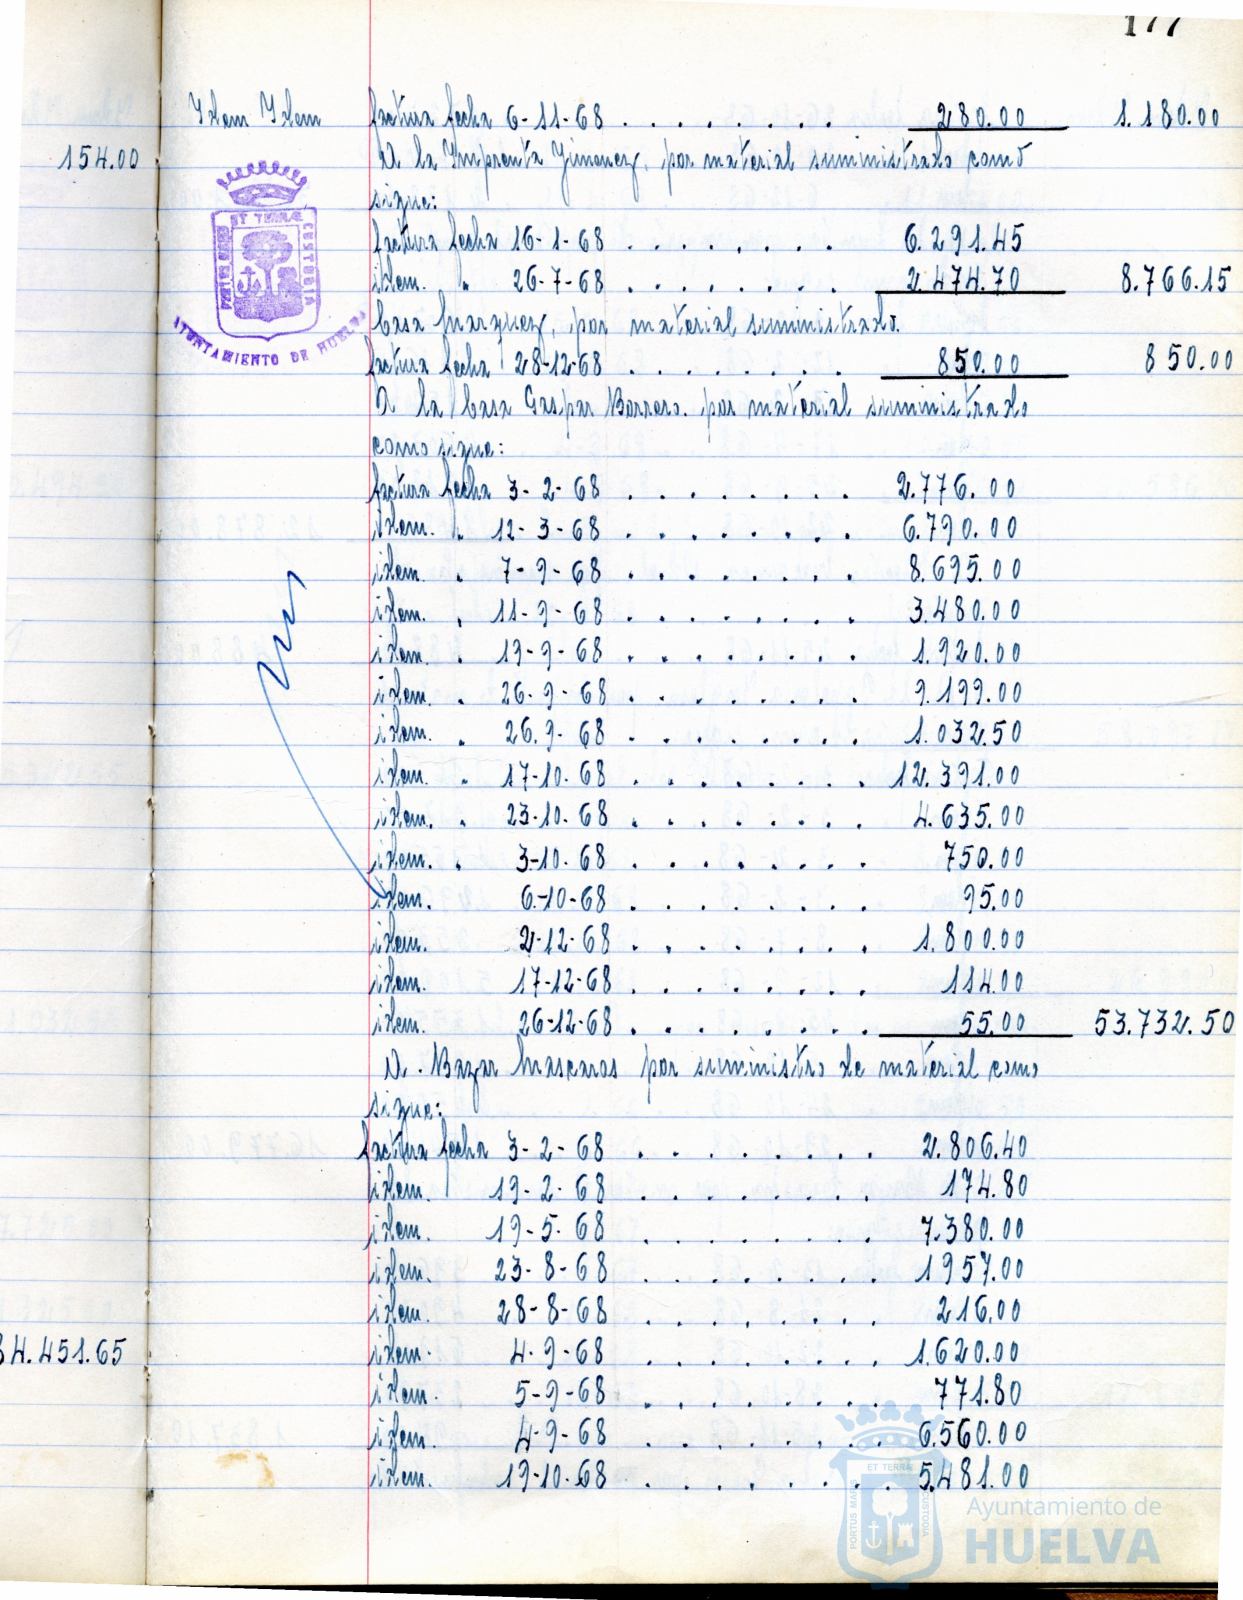 177
Idem Idem factura fecha 6-11-68 . . . . . . . 280.00 1.180.00
154.00
A la Imprenta Jimenez, por material suministrado como
sigue:
factura fecha 16-1-68 . . . . . . 6.291.45
idem. " 26-7-68 . . . . . . . 2.474.70 8.766.15
Casa Marquez, por material suministrado.
factura fecha 28-12-68 . . . . . . . 850.00 850.00
A la Casa Gaspar Barrero. por material suministrado
como sigue:
factura fecha 3-2-68 . . . . . . . 2.776.00
idem. " 12-3-68 . . . . . . . 6.790.00
idem. " 7-9-68 . . . . . . . 8.695.00
idem. " 11-9-68 . . . . . . . 3.480.00
idem. " 19-9-68 . . . . . . . 1.920.00
idem. " 26-9-68 . . . . . . . 9.199.00
idem. " 26.9-68 . . . . . . . 1.032.50
idem. " 17-10-68 . . . . . . . 12.391.00
idem. " 23-10-68 . . . . . . . 4.635.00
idem. " 3-10-68 . . . . . . . 750.00
idem. 6-10-68 . . . . . . . 95.00
idem. 2-12-68 . . . . . . . 1.800.00
idem. 17-12-68 . . . . . . . 114.00
idem. 26-12-68 . . . . . . . 55.00 53.732.50
A. Bazar Mascaros por suministro de material como
sigue:
factura fecha 3-2-68 . . . . . . . 2.806.40
idem. 19-2-68 . . . . . . . 174.80
idem. 19-5-68 . . . . . . . 7.380.00
idem. 23-8-68 . . . . . . . 1957.00
idem. 28-8-68 . . . . . . . 216.00
84.451.65 idem. 4-9-68 . . . . . . . 1.620.00
idem. 5-9-68 . . . . . . . 771.80
idem. 4-9-68 . . . . . . . 6.560.00
idem. 19-10-68 . . . . . . . 5.481.00
PORTUS MARIS ET TERRÆ CUSTODIA
AYUNTAMIENTO DE HUELVA
PORTUS MARIS ET TERRÆ CUSTODIA
Ayuntamiento de
HUELVA